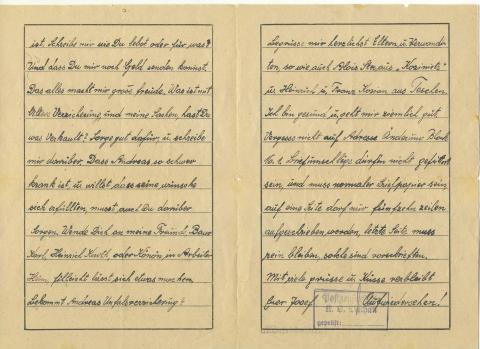 ist. Schreibe mir wie Du lebst oder für was?
Und dass Du mir noch Geld senden konnst.
Das alles macht mir große freude. Was ist mit
Versicherung, und meine Sachen, hast Du
was Verkauft? Sorge gut dafür, u. schreibe
mir darüber. Dass Andreas so schwer
krank ist, u. willst, dass seine wünsche
sich erfüllten, musst auch Du darüber
sorgen. Wende Dich an meine Freunde, Baur
Karl, Heinrich Kurth, oder Konon, im Arbeiter
Heim, filleicht lässt sich etwas machen.
Bekommt Andreas Unfalversicherung?
Begrüsse mir herzlichst Eltern, u. Verwand-
ten so wie auch Alois
u. Heinrich, u. Franz Konon aus Teschen.
Ich bin gesund, u. geht mir ziemlich gut.
Vergesse nicht auf Adresse Änderung Block
16. I. Briefumschläge dürfen nicht gefüttert
sein, und muss normaler Briefpapier sein
auf eine Seite darf nur fünfzehn zeilen
aufgeschrieben werden, letzte Seite muss
rein bleiben, solche sind vorschriften.
Mit viele grüsse u. Küsse verbleibt
Euer Josef Aufwiedersehen!
geprüft: